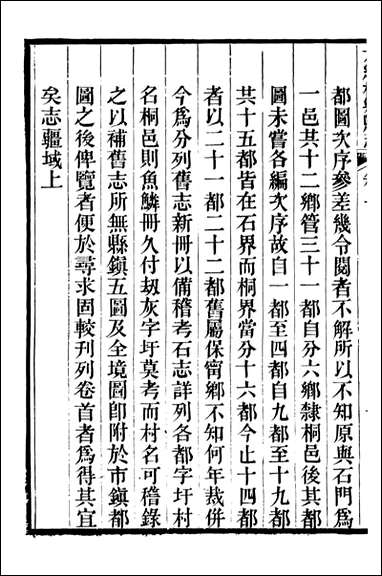 都圖次序參差幾令閱者不解所以不知原與石門爲
一邑其十二鄉管三十一都自分六鄉隸桐邑後其都
圖未嘗各編次序故自一都至四都自九都至十九都
共十五都皆在石界而桐界當分十六都今止十四都
者以二十一都二十二都舊屬保甯鄉不知何年裁併
今爲分列舊志新冊以備稽考石志詳列各都字圩村
名桐邑則魚鱗冊久付刼灰字圩莫考而村名可稽錄
之以補舊志所無縣鎮五圖及全境圖卽附於市鎮都
圖之後俾覽者便於尋求固較刊列卷首者爲得其宜
矣志疆域上